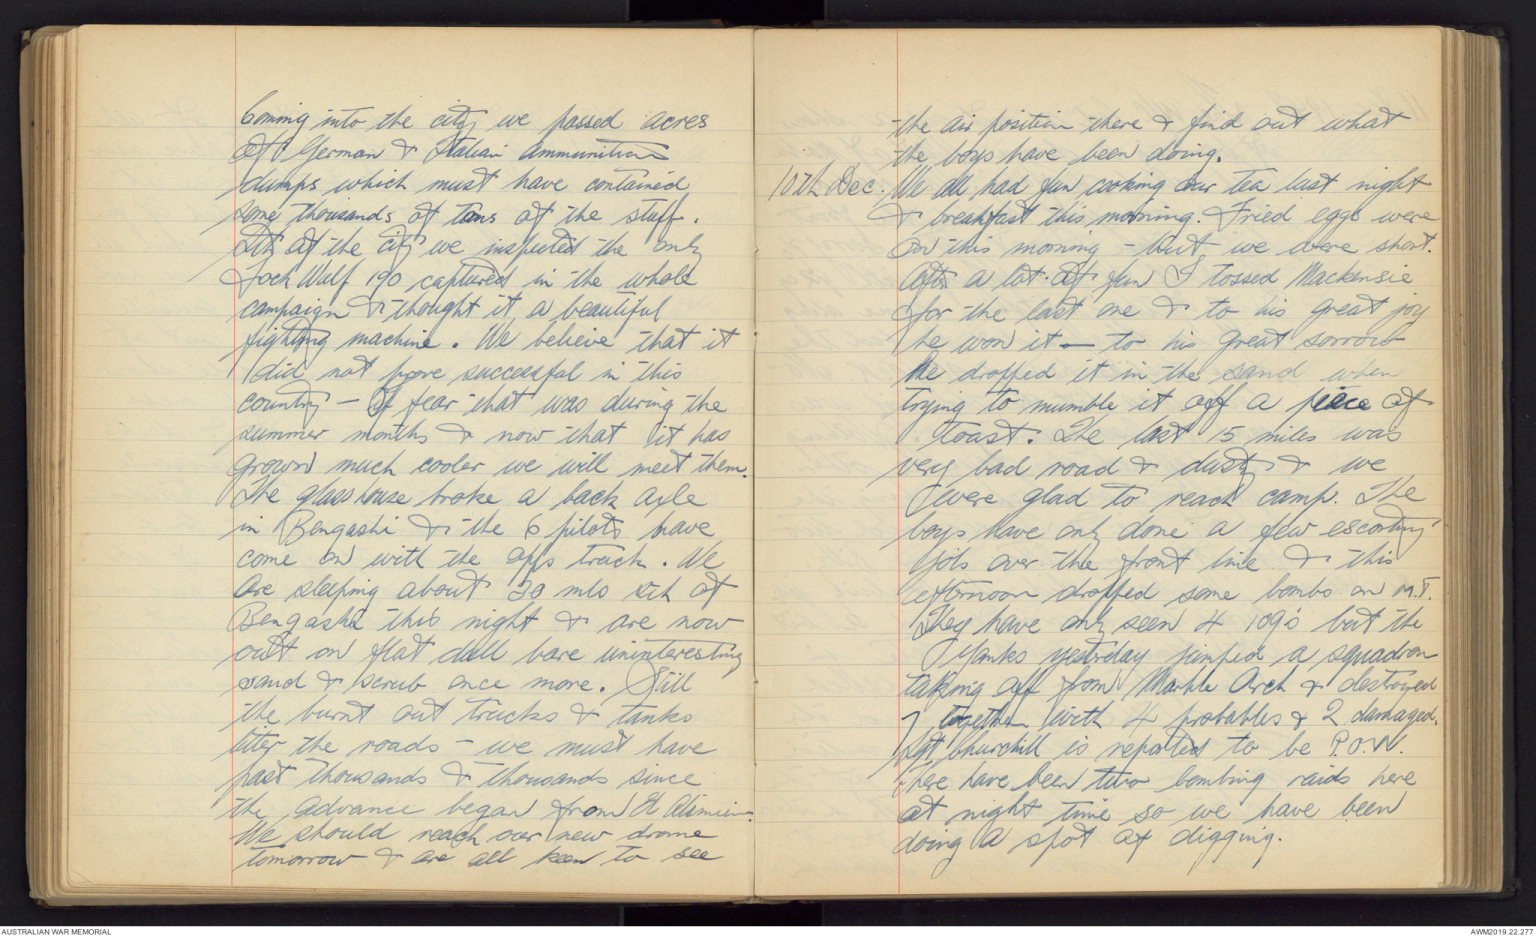 Coming into the city we passed acres
of German & Italian ammunition
dumps which must have contained
some thousands of tons of the stuff.
of the city we inspected the only
Fock Wulf 190 captured in the whole
campaign & thought it a beautiful
fighting machine. We believe that it
did not prove successful in this
country - I fear that was during the
summer months & now that it has
grown much cooler we will meet them.
The glasshouse broke a back axle
in Bengashi & the 6 pilots have
come on with the ops truck. We
are sleeping about 30 mls sth of
Bengashi this night & are now
out on flat dull bare uninteresting
sand & scrub once more. Still
the burnt out trucks & tanks
liter the roads - we must have
past thousands & thousands since
the advance began from El Alimien.
We should reach our new drome
tomorrow & are all keen to see
the air position there & find out what
the boys have been doing.
10th Dec. We all had fun cooking our tea last night
& breakfast this morning. Fried eggs were
on this morning - but we were short.
After a lot of fun I tossed Mackensie
for the last one & to his great joy
he won it - to his great sorrow
he dropped it in the sand when
trying to mumble it off a piece of
toast. The last 15 miles was
very bad road & dusty & we
were glad to reach camp. The
boys have only done a few escorting
jobs over the front line & this
afternoon dropped some bombs on M.T.
They have only seen 4 109's but the
Yanks yesterday jumped a squadron
taking off from Marble Arch & destroyed
7 together with 4 probables & 2 damaged.
Sgt Churchill is reported to be P.O.W.
There have been two bombing raids here
at night time so we have been
doing a spot of digging.
AUSTRALIAN WAR MEMORIAL
AWM2019.22.277